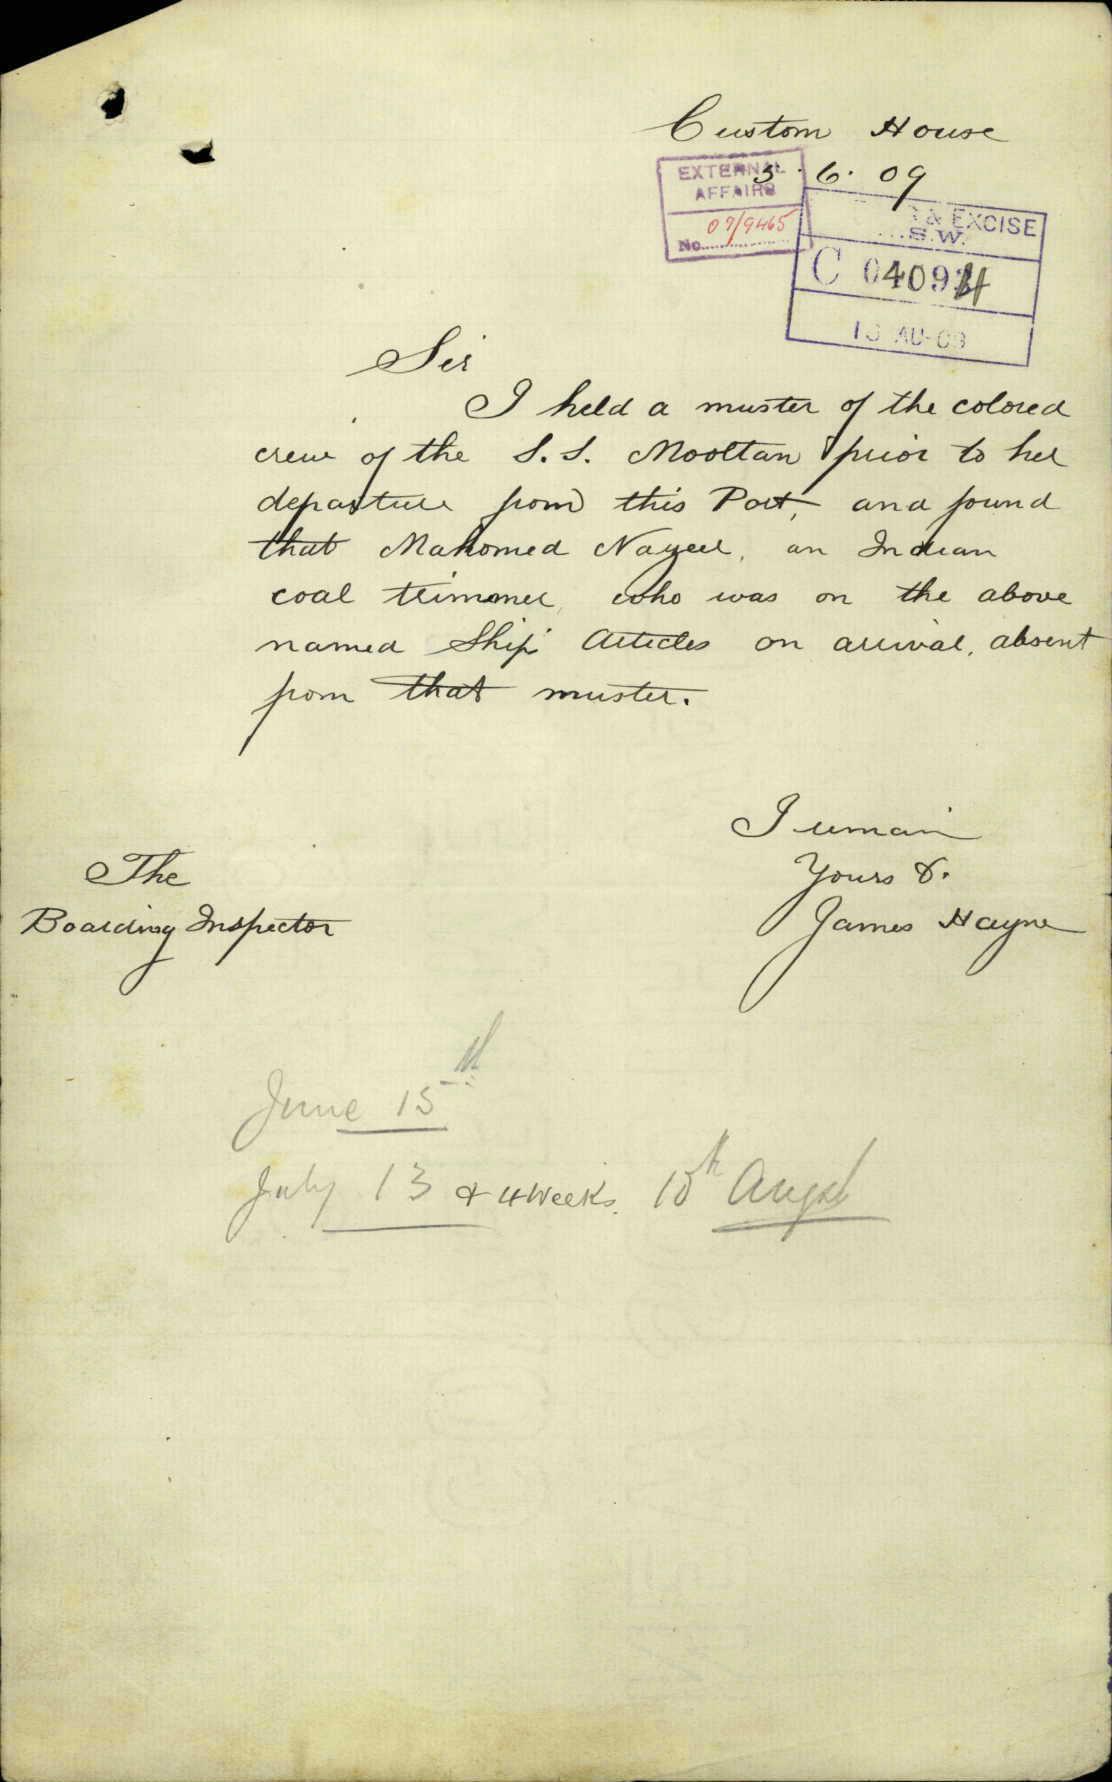 Custom House
5. 6. 09
EXTERNAL
AFFAIRS
No. 09/9465
& EXCISE
S.W.
C 04094
13 AU 09
Sir
I held a muster of the colored
crew of the S.S. Mooltan prior to her
departure from this Port, and found
that Mahomed Nayeer, an Indian
coal trimmer, who was on the above
named Ship Articles on arrival, absent
from that muster.
I remain
Yours &.
James Hayne
The
Boarding Inspector
June 15th
July 13 & 4 Weeks. 10th Augst